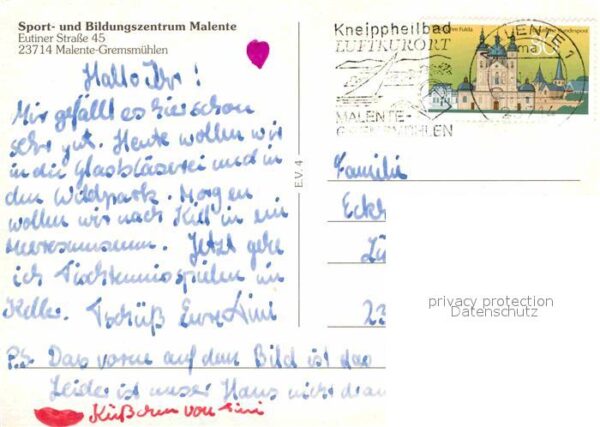 Sport- und Bildungszentrum Malente
Eutiner Straße 45
23714 Malente-Gremsmühlen
Hallo Ihr!
Mir gefällt es hier schon
sehr gut. Heute wollen wir
in die Glasbläserei und in
den Wildpark. Morgen
wollen wir nach Kiel in ein
Meeresmuseum. Jetzt gehe
ich Tischtennis spielen im
Keller. Tschüß Eure Tini
P.S. Das vorne auf dem Bild ist das
Leider ist unser Haus nicht dra
Küßchen von Tini
E.V. 4
Kneippheilbad
LUFTKURORT
MALENTE-
GREMSMÜHLEN
MALENTE 1
Fulda
Deutsche Bundespost
Familie
Eck
Lü
23
privacy protection
Datenschutz